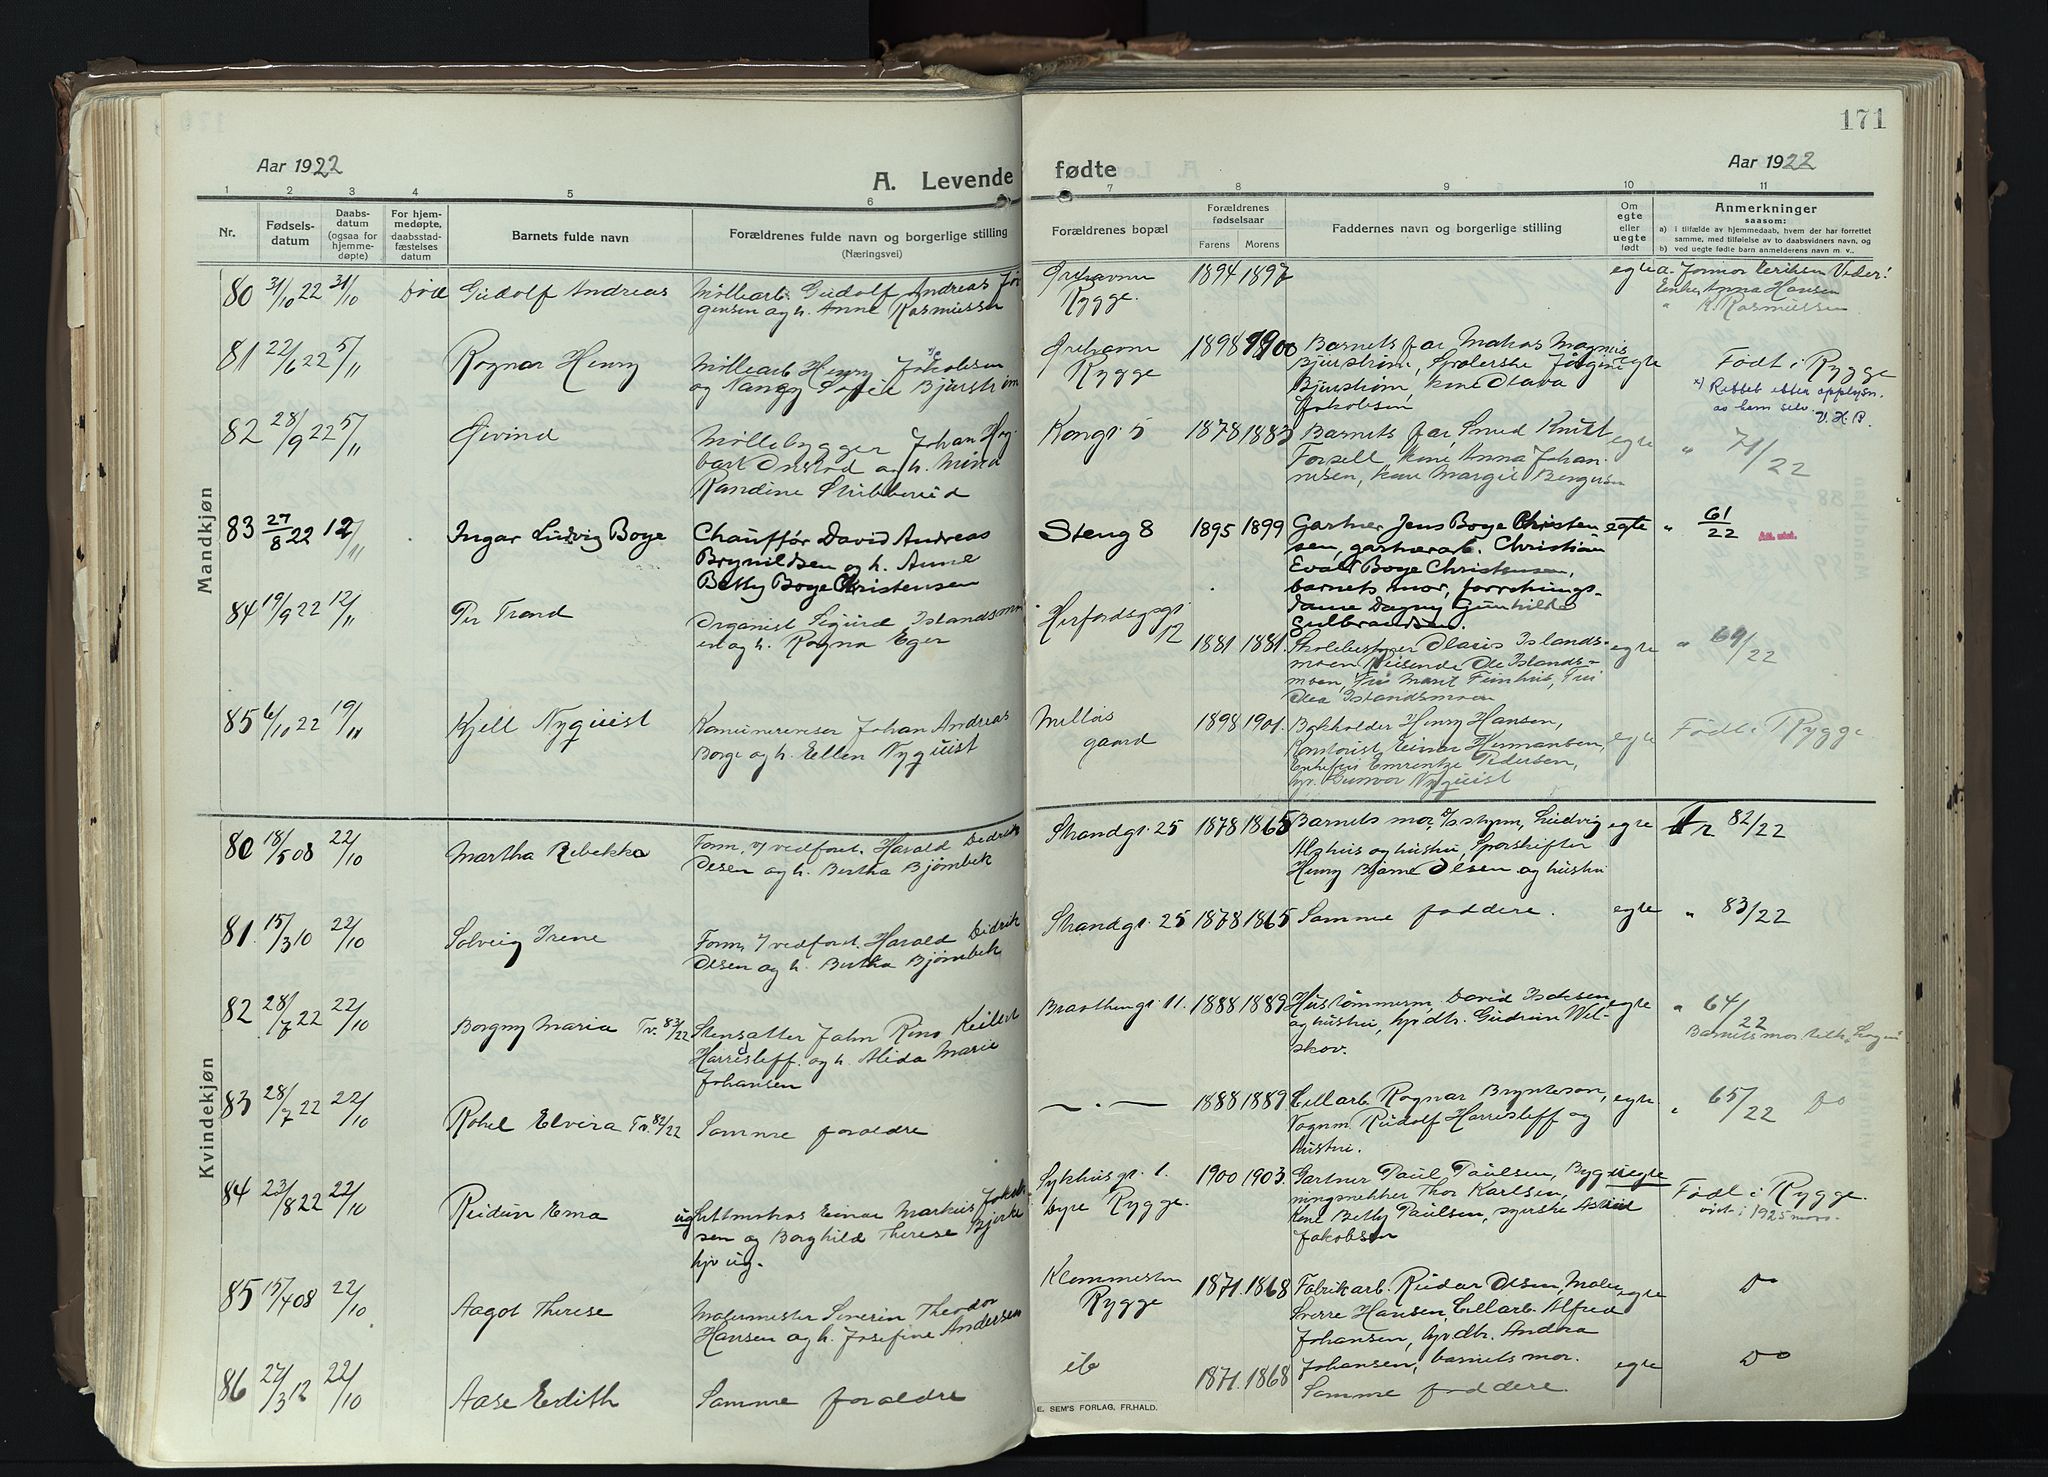 171
Aar 1922
A. Levende fødte
Aar 1922
1 2 3 4 5 6 7 8 9 10 11
Nr.
Fødsels-
datum
Daabs-
datum
(ogsaa for
hjemme-
døpte)
For hjem-
medøpte,
daabsstad-
fæstelses
datum
Barnets fulde navn
Forældrenes fulde navn og borgerlige stilling
(Næringsvei)
Forældrenes bopæl
Forældrenes
fødselsaar
Farens Morens
Faddernes navn og borgerlige stilling
Om
egte
eller
uegte
født
Anmerkninger
saasom:
a) i tilfælde av hjemmedaab, hvem der har forrettet
samme, med tilføielse av to daabsvidners navn, og
b) ved uegte fødte barn anmelderens navn m. v.
Mandkjøn
80 31/10 22 31/10 Død Gudolf Andreas
Møllearb. Gudolf Andreas Jør
gensen og h. Anne Rasmussen
Ørehavna
Rygge.
1894 1897
egte
a. Jormor
Enke, Anna Hansen
" K. Rasmussen
81 22/6 22 5/11 Ragnar Henry
Møllearb. Henry Jakobsen
og Nancy Sofie Bjurstrøm
Ørehavna
Rygge
1898 1900
Barnets far, Matros Magnus
Bjurstrøm, Spolerske Jørgine
Bjurstrøm, kone Olava
Jakobsen
egte
Født i Rygge
x) Rettet efter opplysn.
av ham selv. V.H.P.
82 28/9 22 5/11 Øivind
Møllebygger Johan Hag-
bart Onstad og h. Mina
Randine Stubberud
Kongsgt. 5
1878 1883
Barnets far, Smed Knut
Forsell, kone Anna Johan-
nesen, kone Margit Bergersen
egte
" 71/22
83 27/8 22 12/11 Ingar Ludvig Boye
Chauffør David Andreas
Brynildsen og h. Anne
Betty Boye Christensen
Steng 8
1895 1899
Gartner Jens Boye Christen
sen, gartnerarb. Christian
Evald Boye Christensen,
barnets mor, forretnings-
dame Dagny Gunhilde
Gulbrandsen.
egte
" 61/22
84 19/9 22 12/11 Per Trond
Organist Sigurd Islandsmo
en og h. Ragna Eger
Herfordsgt.
12
1881 1881
Skolebestyrer Olaus Islands-
moen, Reisende Ole Islands-
moen, Fru Marit Finhus, Fru
Olea Islandsmoen
egte
" 69/22
85 6/10 22 19/11 Kjell Nyquist
Kæmnerreviser Johan Andreas
Borge og h. Ellen Nyquist
Melløs
gaard
1898 1901.
Bokholder Henry Hansen,
Kontorist Einar Hermansen,
Enkefru Emrentze Pedersen,
hjv. Gunvor Nyquist
egte
Født i Rygge.
Kvindekjøn
80 18/5 08 22/10 Martha Rebekka
Form. v/vedforet. Harald Didrik
Olsen og h. Bertha Bjørnbek
Strandgt. 25
1878 1865
Barnets mor, Ludvig
og hustru, Sporskifter
Henry Bjarne Olsen og hustru
egte
82/22
81. 15/3 10 22/10 Solveig Irene
Form. v/vedforet. Harald Didrik
Olsen og h. Bertha Bjørnbek
Strandgt. 25
1878 1865
Samme faddere.
egte
" 83/22
82 28/7 22 22/10 Borgny Maria Tv. 83/22
Stensætter John Rino Keilert
Harrisleff. og h. Alida Marie
Johansen
Braathengt. 11.
1888 1889
Hustømmerm. David Isaksen
og hustru, hjv. dtr. Gudrun Wel-
skov.
egte
" 64/22
83 28/7 22 22/10 Rakel Elvira Tv. 82/22
Samme forældre
— . —
1888 1889
Cellarb. Ragnar Brynteson,
Vognm. Rudolf Harrisleff og
hustru.
egte
" 65/22 Do
84 23/8 22 22/10 Reidun Ema
ug. Lettmatros Einar Markus Jakob
sen og Borghild Therese Bjerke
hjv ug.
Sykhusgt. 1.
Dyre Rygge.
1900 1903.
Gartner Paul Paulsen, Byg-
ningsnekker Thor Karlsen,
Kone Betty Paulsen, syerske Astrid
Jakobsen
uegte
Født i Rygge.
85 15/4 08 22/10 Aagot Therese
Malermester Severin Theodor
Hansen og h. Josefine Andersen
Klommesten
Rygge
1871. 1868
Fabrikarb. Reidar Olsen, Maler
Sverre Hansen, Cellarb. Alfred
Johansen, hjv. dtr. Andrea
Johansen, barnets mor.
egte
Do
86 27/3 12 22/10 Aase Edith
Samme forældre
ib
1871. 1868
Samme faddere.
egte
Do
E. SEM'S FORLAG, FR.HALD.